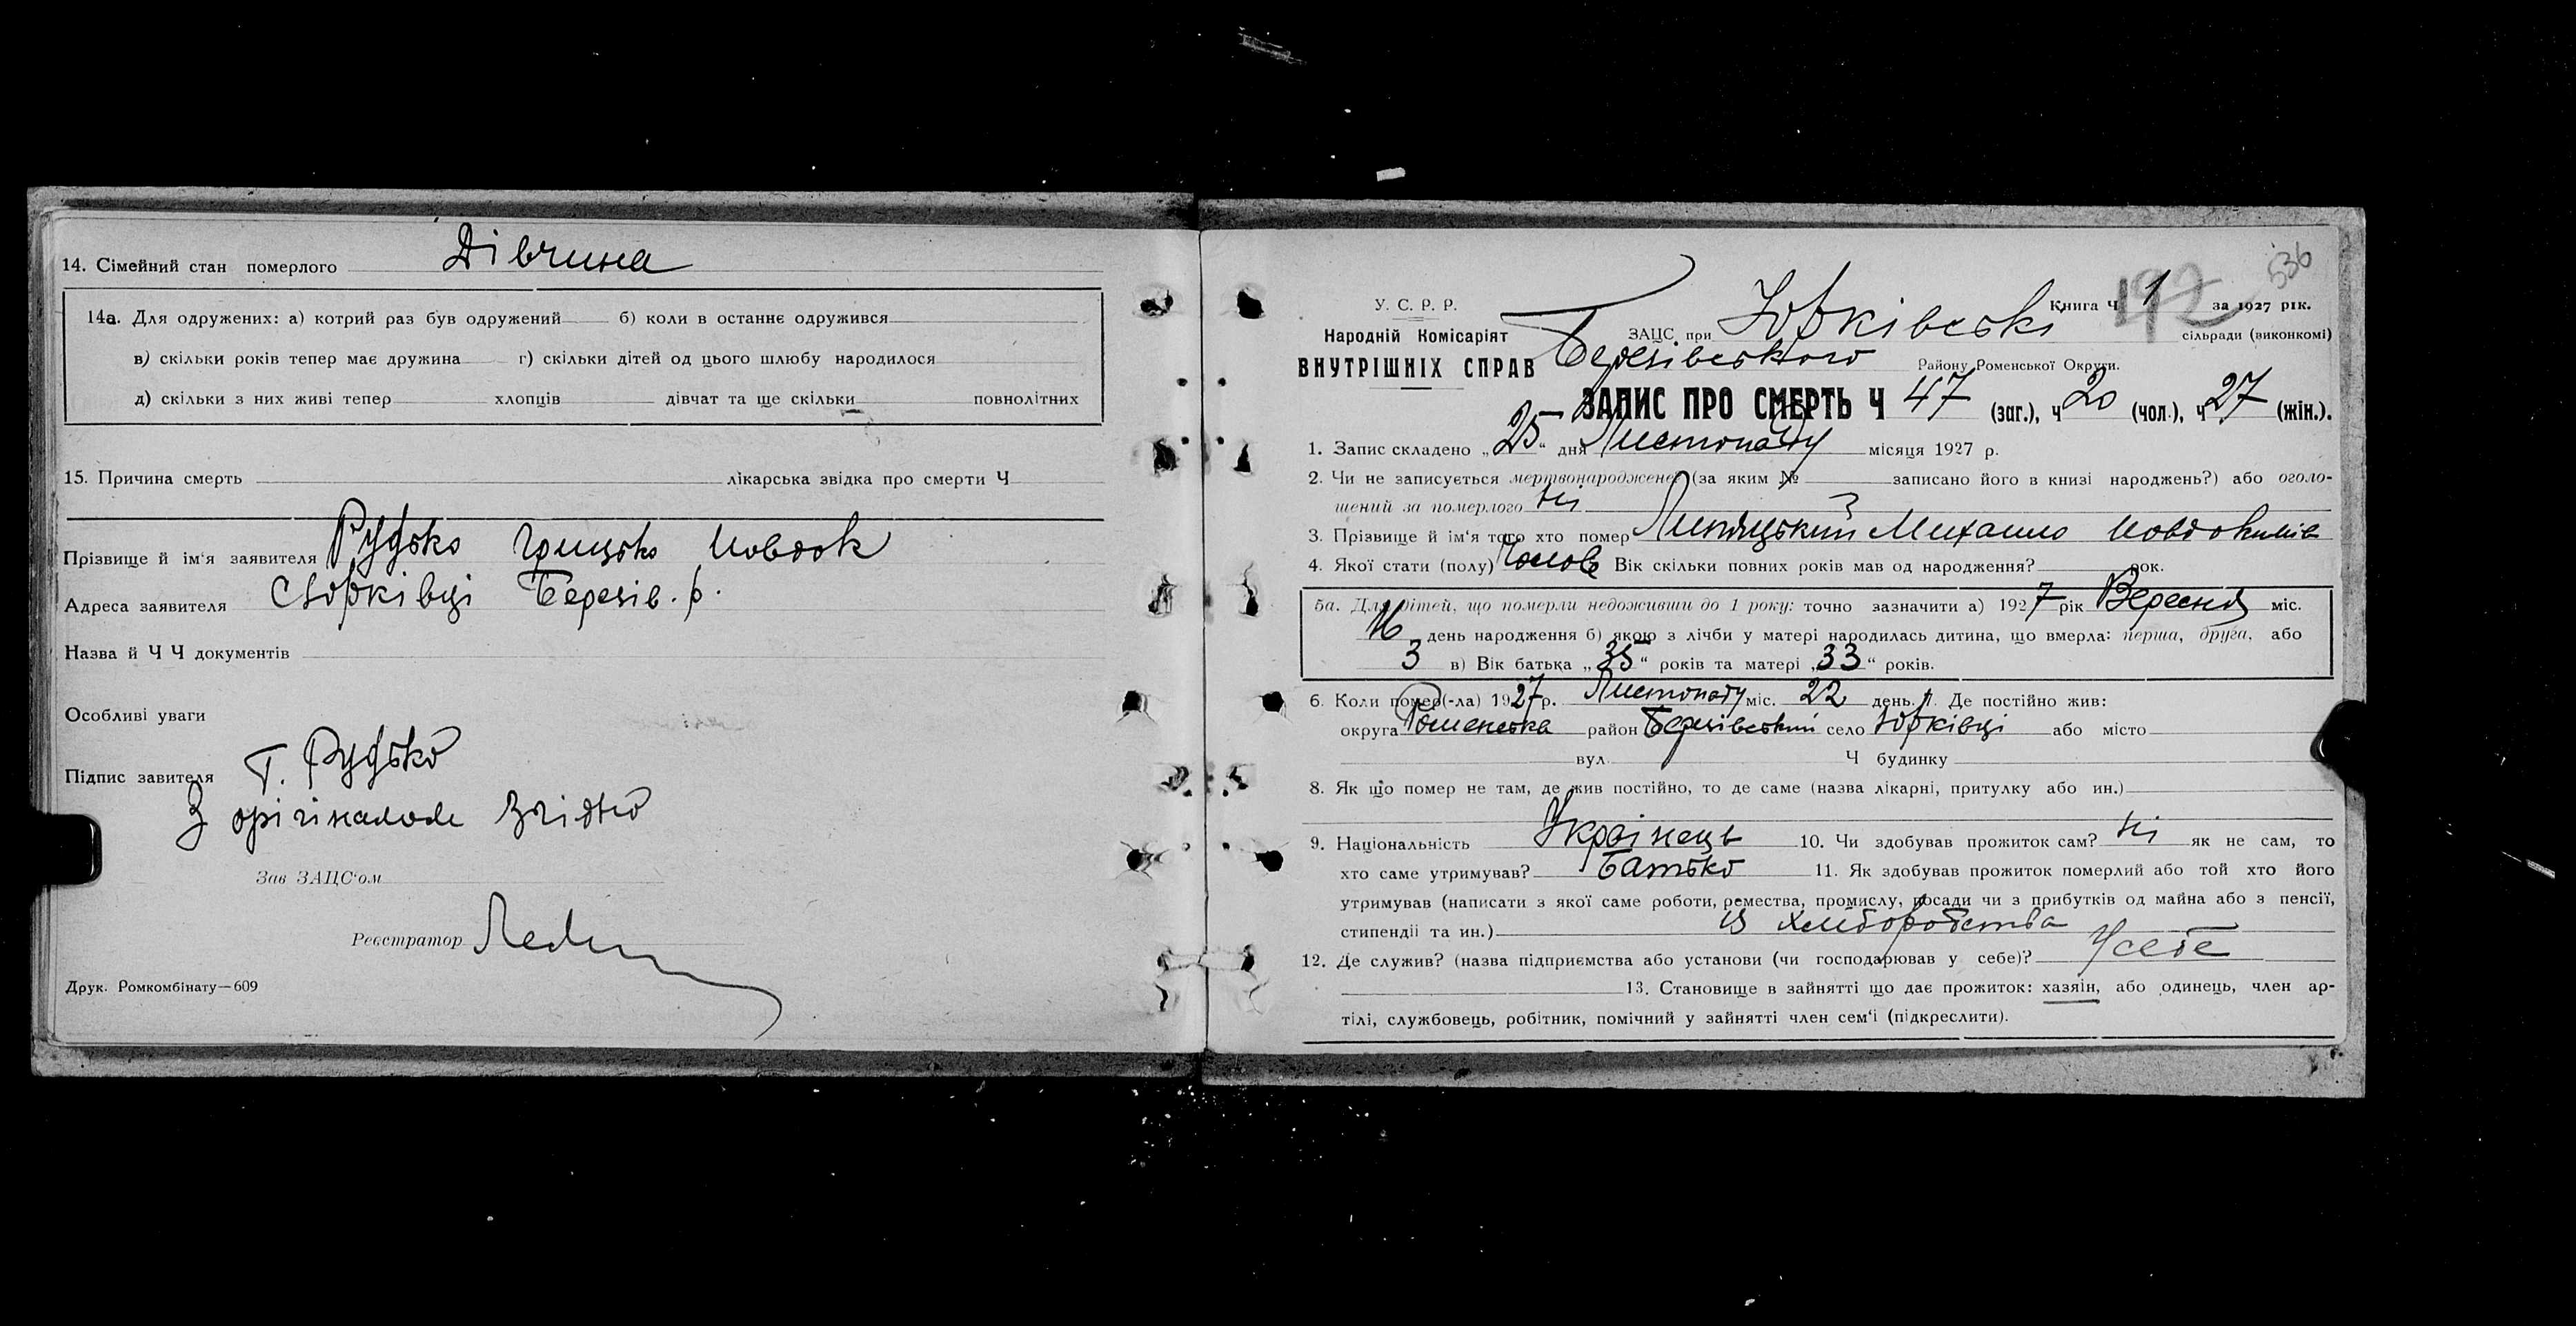 14. Сімейний стан померлого Дівчина
14а. Для одружених: а) котрий раз був одружений б) коли в останнє одружився
в) скільки років тепер має дружина г) скільки дітей од цього шлюбу народилося
д) скільки з них живі тепер хлопців дівчат та ще скільки повнолітних
15. Причина смерть лікарська звідка про смерти Ч
Прізвище й ім'я заявителя Рудько Грицько Іовдок
Адреса заявителя с Юрківці Березів. р.
Назва й Ч Ч документів
Особливі уваги
Підпис завителя Г. Рудько
З орігіналом згідно
Зав ЗАЦС'ом
Реєстратор
Друк. Ромкомбінату—609
536
192
У. С. Р. Р. Книга Ч 1 за 1927 рік.
Народній Комісаріят ЗАЦС при Юрківські сільради (виконкомі)
ВНУТРІШНІХ СПРАВ Березівського Району Роменської Округи.
ЗАПИС ПРО СМЕРТЬ Ч 47 (заг.), ч 20 (чол.), ч 27 (жін.).
1. Запис складено „25" дня Листопаду місяця 1927 р.
2. Чи не записується мертвонароджене (за яким № записано його в книзі народжень?) або оголо-
шений за померлого ні
3. Прізвище й ім'я того хто помер Михайло Іовдокимів
4. Якої стати (полу) Чолов Вік скільки повних років мав од народження? рок.
5а. Для дітей, що померли недоживши до 1 року: точно зазначити а) 1927 рік Вересня міс.
16 день народження б) якою з лічби у матері народилась дитина, що вмерла: перша, друга, або
3 в) Вік батька „35" років та матері „33" років.
6. Коли помер(-ла) 1927 р. Листопаду міс. 22 день. 7. Де постійно жив:
округа Роменська район Березівський село Юрківці або місто
вул. Ч будинку
8. Як що помер не там, де жив постійно, то де саме (назва лікарні, притулку або ин.)
9. Національність Українець 10. Чи здобував прожиток сам? ні як не сам, то
хто саме утримував? Батько 11. Як здобував прожиток померлий або той хто його
утримував (написати з якої саме роботи, ремества, промислу, посади чи з прибутків од майна або з пенсії,
стипендії та ин.) із хліборобства
12. Де служив? (назва підприємства або установи (чи господарював у себе)? У себе
13. Становище в зайнятті що дає прожиток: хазяін, або одинець, член ар-
тілі, службовець, робітник, помічний у зайнятті член сем'ї (підкреслити).